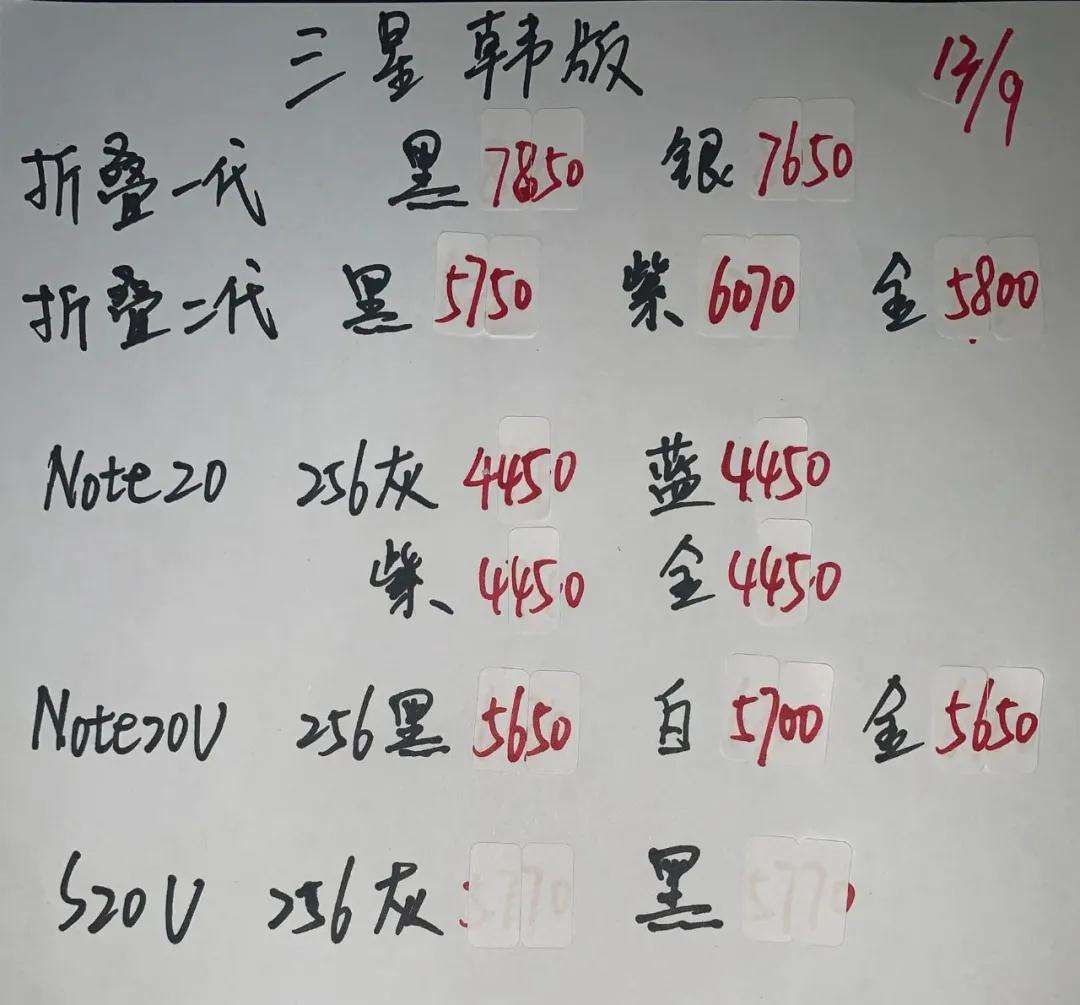 三星 韩版 13/9
折叠一代 黑 7850 银 7650
折叠二代 黑 5750 紫 6070 金 5800
Note20 256灰 4450 蓝 4450
紫 4450 金 4450
Note20U 256黑 5650 白 5700 金 5650
S20U 256灰 黑